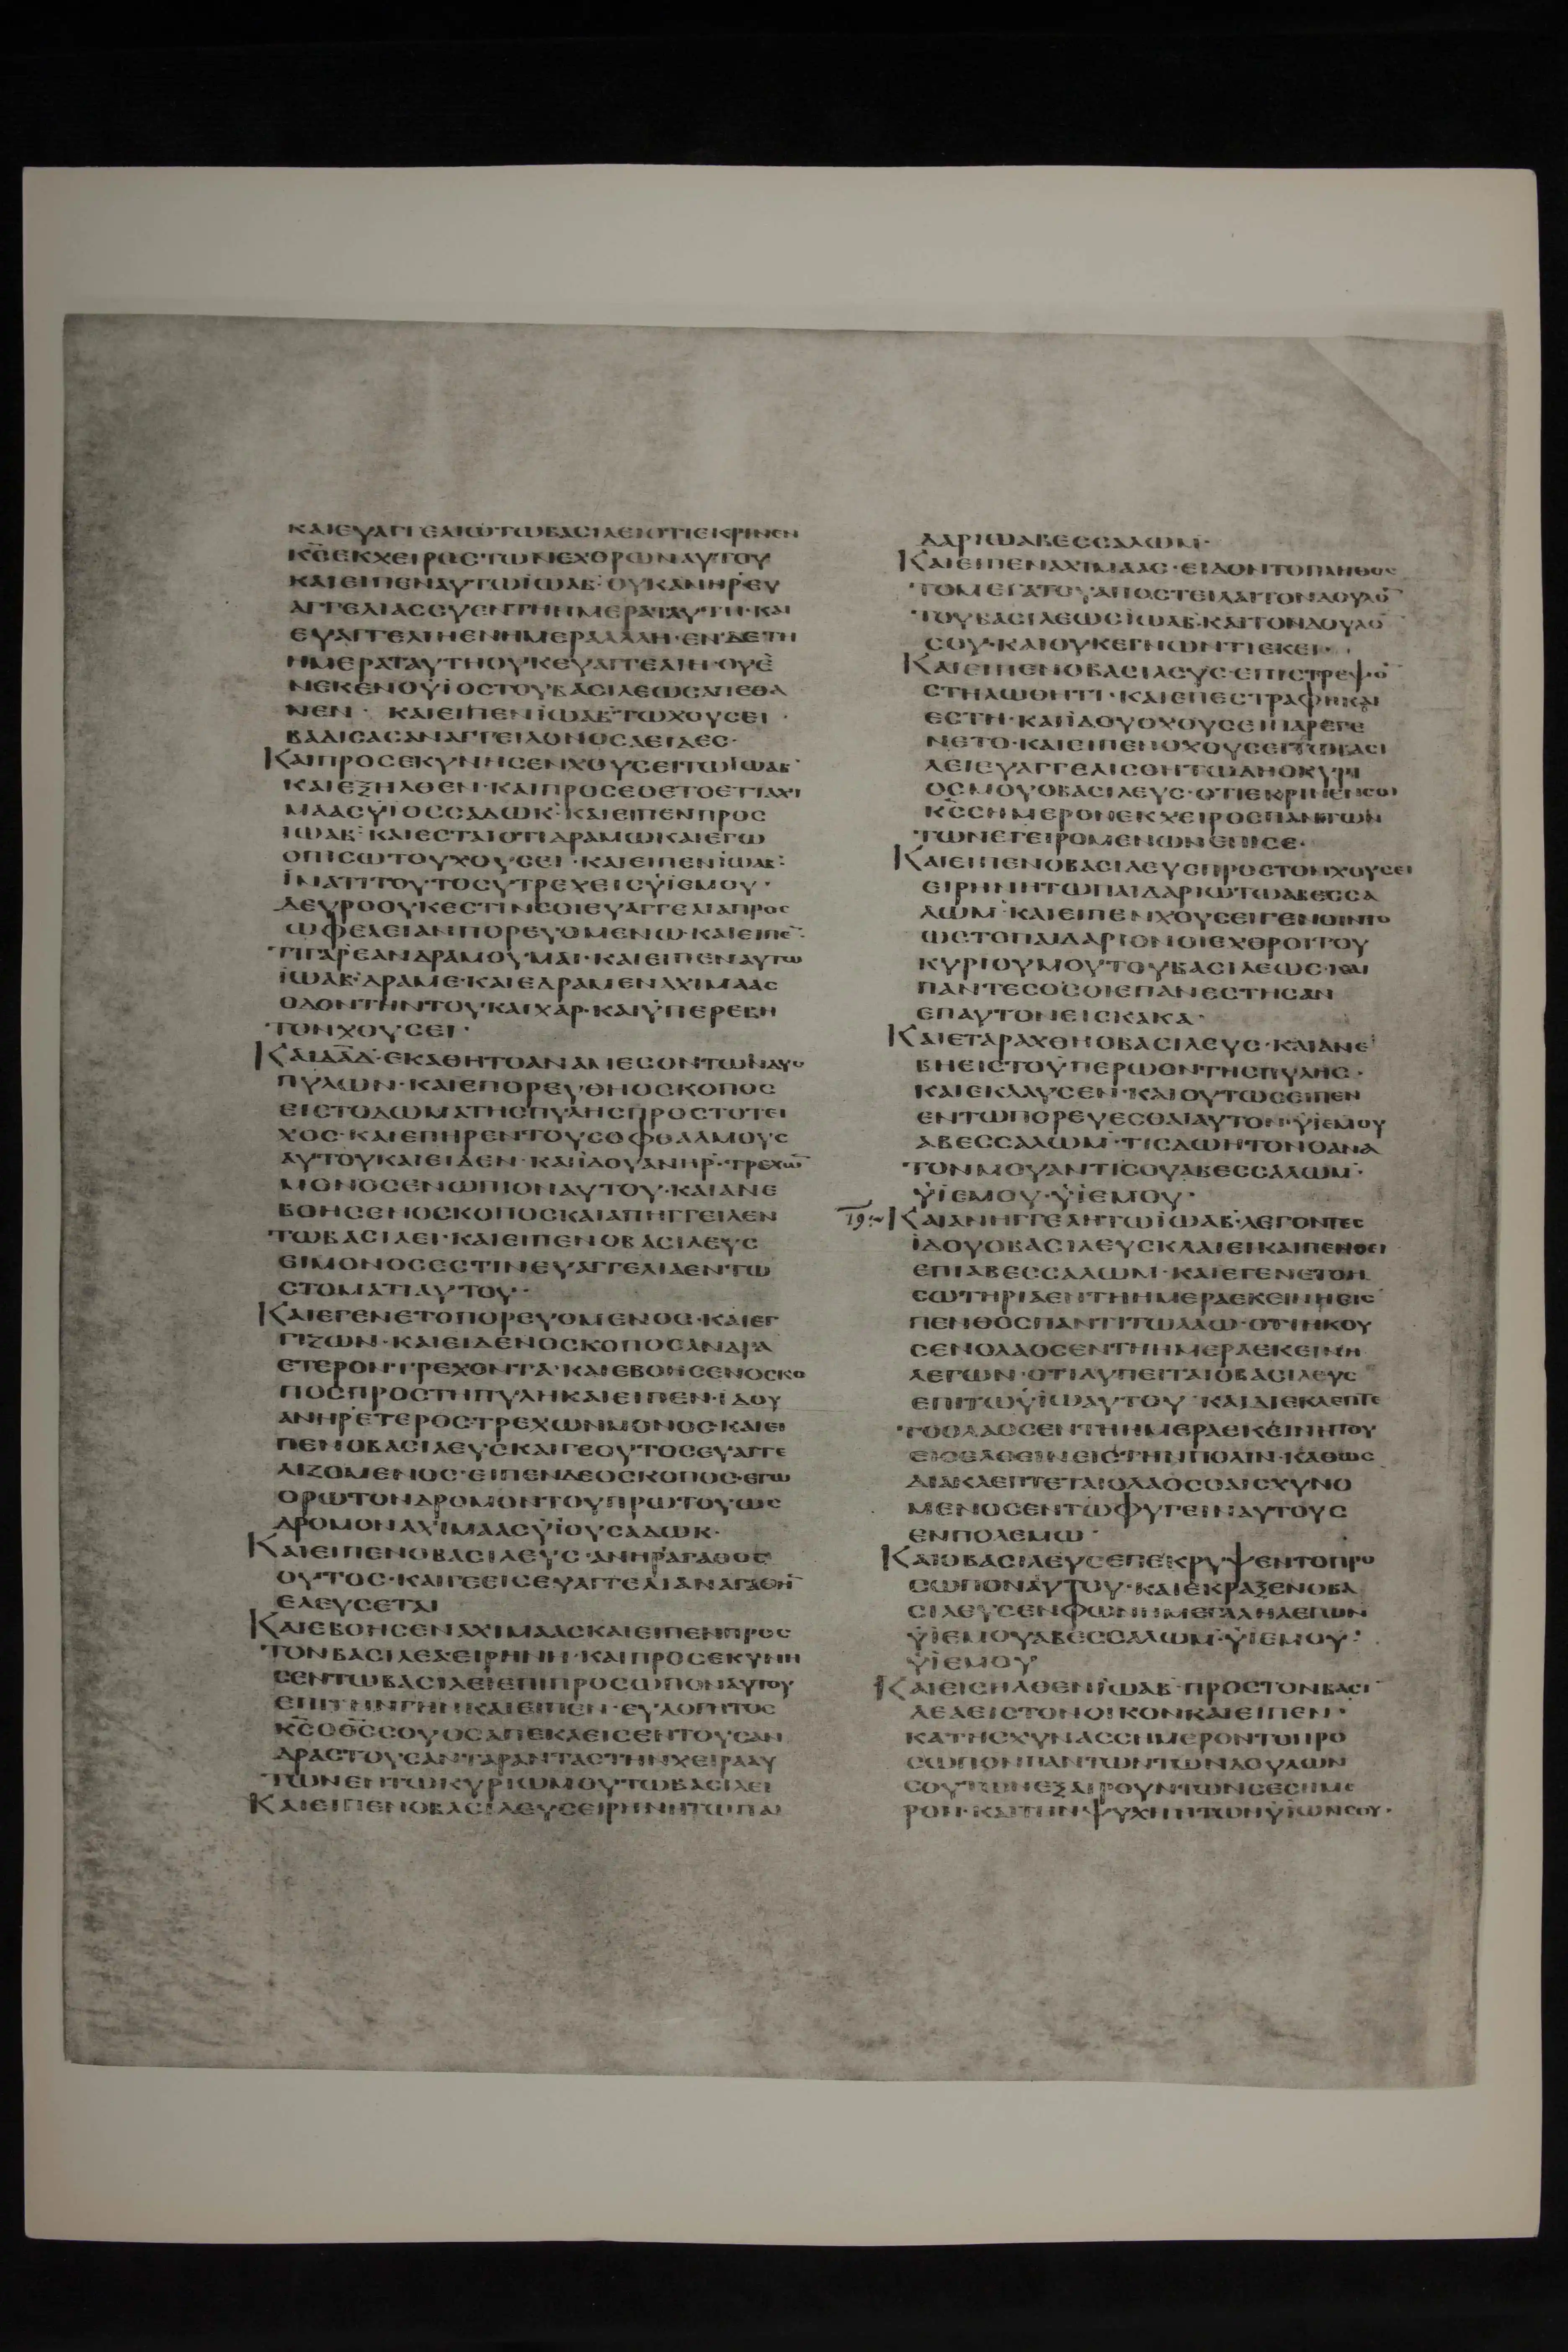 ΚΑΙΕΥΑΓΓΕΛΙΩΤΩΒΑΣΙΛΕΙΟΤΙΕΚΡΙΝΕΝ
Κ̅Σ̅ΕΚΧΕΙΡΟΣΤΩΝΕΧΘΡΩΝΑΥΤΟΥ
ΚΑΙΕΙΠΕΝΑΥΤΩΪΩΑΒ·ΟΥΚΑΝΗΡΕΥ
ΑΓΓΕΛΙΑΣΣΥΕΝΤΗΗΜΕΡΑΤΑΥΤΗ·ΚΑΙ
ΕΥΑΓΓΕΛΙΗΕΝΗΜΕΡΑΑΛΛΗ·ΕΝΔΕΤΗ
ΗΜΕΡΑΤΑΥΤΗΟΥΚΕΥΑΓΓΕΛΙΗ·ΟΥΕ̅
ΝΕΚΕΝΟΫΙΟΣΤΟΥΒΑΣΙΛΕΩΣΑΠΕΘΑ
ΝΕΝ· ΚΑΙΕΙΠΕΝΪΩΑΒΤΩΧΟΥΣΕΙ·
ΒΑΔΙΣΑΣΑΝΑΓΓΕΙΛΟΝΟΣΑΕΙΔΕΣ·
ΚΑΙΠΡΟΣΕΚΥΝΗΣΕΝΧΟΥΣΕΙΤΩΪΩΑΒ·
ΚΑΙΕΞΗΛΘΕΝ·ΚΑΙΠΡΟΣΕΘΕΤΟΕΤΙΑΧΙ
ΜΑΑΣΫΙΟΣΣΑΔΩΚ·ΚΑΙΕΙΠΕΝΠΡΟΣ
ΪΩΑΒ·ΚΑΙΕΣΤΑΙΟΤΙΔΡΑΜΩΚΑΙΕΓΩ
ΟΠΙΣΩΤΟΥΧΟΥΣΕΙ·ΚΑΙΕΙΠΕΝΪΩΑΒ·
ΪΝΑΤΙΤΟΥΤΟΣΥΤΡΕΧΕΙΣΫΙΕΜΟΥ·
ΔΕΥΡΟΟΥΚΕΣΤΙΝΣΟΙΕΥΑΓΓΕΛΙΑΠΡΟΣ
ΩΦΕΛΕΙΑΝΠΟΡΕΥΟΜΕΝΩ·ΚΑΙΕΙΠΕ̅·
ΤΙΓΑΡΕΑΝΔΡΑΜΟΥΜΑΙ·ΚΑΙΕΙΠΕΝΑΥΤΩ
ΪΩΑΒ·ΔΡΑΜΕ·ΚΑΙΕΔΡΑΜΕΝΑΧΙΜΑΑΣ
ΟΔΟΝΤΗΝΤΟΥΚΑΙΧΑΡ·ΚΑΙΫΠΕΡΕΒΗ
ΤΟΝΧΟΥΣΕΙ·
ΚΑΙΔ̅Α̅Δ̅·ΕΚΑΘΗΤΟΑΝΑΜΕΣΟΝΤΩΝΔΥΟ
ΠΥΛΩΝ·ΚΑΙΕΠΟΡΕΥΘΗΟΣΚΟΠΟΣ
ΕΙΣΤΟΔΩΜΑΤΗΣΠΥΛΗΣΠΡΟΣΤΟΤΕΙ
ΧΟΣ·ΚΑΙΕΠΗΡΕΝΤΟΥΣΟΦΘΑΛΜΟΥΣ
ΑΥΤΟΥΚΑΙΕΙΔΕΝ·ΚΑΙΪΔΟΥΑΝΗΡ·ΤΡΕΧΩ̅
ΜΟΝΟΣΕΝΩΠΙΟΝΑΥΤΟΥ·ΚΑΙΑΝΕ
ΒΟΗΣΕΝΟΣΚΟΠΟΣΚΑΙΑΠΗΓΓΕΙΛΕΝ
ΤΩΒΑΣΙΛΕΙ·ΚΑΙΕΙΠΕΝΟΒΑΣΙΛΕΥΣ
ΕΙΜΟΝΟΣΕΣΤΙΝΕΥΑΓΓΕΛΙΑΕΝΤΩ
ΣΤΟΜΑΤΙΑΥΤΟΥ·
ΚΑΙΕΓΕΝΕΤΟΠΟΡΕΥΟΜΕΝΟΣ·ΚΑΙΕΓ
ΓΙΖΩΝ·ΚΑΙΕΙΔΕΝΟΣΚΟΠΟΣΑΝΔΡΑ
ΕΤΕΡΟΝΤΡΕΧΟΝΤΑ·ΚΑΙΕΒΟΗΣΕΝΟΣΚΟ
ΠΟΣΠΡΟΣΤΗΠΥΛΗΚΑΙΕΙΠΕΝ·ΪΔΟΥ
ΑΝΗΡΕΤΕΡΟΣΤΡΕΧΩΝΜΟΝΟΣ·ΚΑΙΕΙ
ΠΕΝΟΒΑΣΙΛΕΥΣΚΑΙΓΕΟΥΤΟΣΕΥΑΓΓΕ
ΛΙΖΟΜΕΝΟΣ·ΕΙΠΕΝΔΕΟΣΚΟΠΟΣ·ΕΓΩ
ΟΡΩΤΟΝΔΡΟΜΟΝΤΟΥΠΡΩΤΟΥΩΣ
ΔΡΟΜΟΝΑΧΙΜΑΑΣΫΙΟΥΣΑΔΩΚ·
ΚΑΙΕΙΠΕΝΟΒΑΣΙΛΕΥΣ·ΑΝΗΡΑΓΑΘΟΣ
ΟΥΤΟΣ·ΚΑΙΓΕΕΙΣΕΥΑΓΓΕΛΙΑΝΑΓΑΘΗ̅
ΕΛΕΥΣΕΤΑΙ
ΚΑΙΕΒΟΗΣΕΝΑΧΙΜΑΑΣΚΑΙΕΙΠΕΝΠΡΟΣ
ΤΟΝΒΑΣΙΛΕΑΕΙΡΗΝΗ·ΚΑΙΠΡΟΣΕΚΥΝΗ
ΣΕΝΤΩΒΑΣΙΛΕΙΕΠΙΠΡΟΣΩΠΟΝΑΥΤΟΥ
ΕΠΙΤΗΝΓΗΝΚΑΙΕΙΠΕΝ·ΕΥΛΟΓΗΤΟΣ
Κ̅Σ̅ΟΘ̅Σ̅ΣΟΥΟΣΑΠΕΚΛΕΙΣΕΝΤΟΥΣΑΝ
ΔΡΑΣΤΟΥΣΑΝΤΑΡΑΝΤΑΣΤΗΝΧΕΙΡΑΑΥ
ΤΩΝΕΝΤΩΚΥΡΙΩΜΟΥΤΩΒΑΣΙΛΕΙ
ΚΑΙΕΙΠΕΝΟΒΑΣΙΛΕΥΣΕΙΡΗΝΗΤΩΠΑΙ
ΔΑΡΙΩΑΒΕΣΣΑΛΩΜ·
ΚΑΙΕΙΠΕΝΑΧΙΜΑΑΣ·ΕΙΔΟΝΤΟΠΛΗΘΟΣ
ΤΟΜΕΓΑΤΟΥΑΠΟΣΤΕΙΛΑΙΤΟΝΔΟΥΛΟ̅
ΤΟΥΒΑΣΙΛΕΩΣΪΩΑΒ·ΚΑΙΤΟΝΔΟΥΛΟ̅
ΣΟΥ·ΚΑΙΟΥΚΕΓΝΩΝΤΙΕΚΕΙ·
ΚΑΙΕΙΠΕΝΟΒΑΣΙΛΕΥΣ·ΕΠΙΣΤΡΕΨΟ̅
ΣΤΗΛΩΘΗΤΙ·ΚΑΙΕΠΕΣΤΡΑΦΗΚΑΙ
ΕΣΤΗ·ΚΑΙΪΔΟΥΟΧΟΥΣΕΙΠΑΡΕΓΕ
ΝΕΤΟ·ΚΑΙΕΙΠΕΝΟΧΟΥΣΕΙΤΩΒΑΣΙ
ΛΕΙΕΥΑΓΓΕΛΙΣΘΗΤΩΔΗΟΚΥΡΙ
ΟΣΜΟΥΟΒΑΣΙΛΕΥΣ·ΟΤΙΕΚΡΙΝΕΝΣΟΙ
Κ̅Σ̅ΣΗΜΕΡΟΝΕΚΧΕΙΡΟΣΠΑΝΤΩΝ
ΤΩΝΕΓΕΙΡΟΜΕΝΩΝΕΠΙΣΕ·
ΚΑΙΕΙΠΕΝΟΒΑΣΙΛΕΥΣΠΡΟΣΤΟΝΧΟΥΣΕΙ
ΕΙΡΗΝΗΤΩΠΑΙΔΑΡΙΩΤΩΑΒΕΣΣΑ
ΛΩΜ·ΚΑΙΕΙΠΕΝΧΟΥΣΕΙΓΕΝΟΙΝΤΟ
ΩΣΤΟΠΑΙΔΑΡΙΟΝΟΙΕΧΘΡΟΙΤΟΥ
ΚΥΡΙΟΥΜΟΥΤΟΥΒΑΣΙΛΕΩΣ·ΚΑΙ
ΠΑΝΤΕΣΟΣΟΙΕΠΑΝΕΣΤΗΣΑΝ
ΕΠΑΥΤΟΝΕΙΣΚΑΚΑ·
ΚΑΙΕΤΑΡΑΧΘΗΟΒΑΣΙΛΕΥΣ·ΚΑΙΑΝΕ
ΒΗΕΙΣΤΟΫΠΕΡΩΟΝΤΗΣΠΥΛΗΣ·
ΚΑΙΕΚΛΑΥΣΕΝ·ΚΑΙΟΥΤΩΣΕΙΠΕΝ
ΕΝΤΩΠΟΡΕΥΕΣΘΑΙΑΥΤΟΝ·ΫΙΕΜΟΥ
ΑΒΕΣΣΑΛΩΜ·ΤΙΣΔΩΗΤΟΝΘΑΝΑ
ΤΟΝΜΟΥΑΝΤΙΣΟΥΑΒΕΣΣΑΛΩΜ·
ΫΪΕΜΟΥ·ΫΪΕΜΟΥ·
19:~ ΚΑΙΑΝΗΓΓΕΛΗΤΩΪΩΑΒ·ΛΕΓΟΝΤΕΣ
ΪΔΟΥΟΒΑΣΙΛΕΥΣΚΛΑΙΕΙΚΑΙΠΕΝΘΕΙ
ΕΠΙΑΒΕΣΣΑΛΩΜ·ΚΑΙΕΓΕΝΕΤΟΗ
ΣΩΤΗΡΙΑΕΝΤΗΗΜΕΡΑΕΚΕΙΝΗΕΙΣ
ΠΕΝΘΟΣΠΑΝΤΙΤΩΛΑΩ·ΟΤΙΗΚΟΥ
ΣΕΝΟΛΑΟΣΕΝΤΗΗΜΕΡΑΕΚΕΙΝΗ
ΛΕΓΩΝ·ΟΤΙΛΥΠΕΙΤΑΙΟΒΑΣΙΛΕΥΣ
ΕΠΙΤΩΫΪΩΑΥΤΟΥ ΚΑΙΔΙΕΚΛΕΠΤΕ
ΤΟΟΛΑΟΣΕΝΤΗΗΜΕΡΑΕΚΕΙΝΗΤΟΥ
ΕΙΣΕΛΘΕΙΝΕΙΣΤΗΝΠΟΛΙΝ·ΚΑΘΩΣ
ΔΙΑΚΛΕΠΤΕΤΑΙΟΛΑΟΣΟΑΙΣΧΥΝΟ
ΜΕΝΟΣΕΝΤΩΦΥΓΕΙΝΑΥΤΟΥΣ
ΕΝΠΟΛΕΜΩ·
ΚΑΙΟΒΑΣΙΛΕΥΣΕΠΕΚΡΥΨΕΝΤΟΠΡΟ
ΣΩΠΟΝΑΥΤΟΥ·ΚΑΙΕΚΡΑΞΕΝΟΒΑ
ΣΙΛΕΥΣΕΝΦΩΝΗΜΕΓΑΛΗΛΕΓΩΝ
ΫΪΕΜΟΥΑΒΕΣΣΑΛΩΜ·ΫΪΕΜΟΥ·
ΫΪΕΜΟΥ
ΚΑΙΕΙΣΗΛΘΕΝΪΩΑΒ·ΠΡΟΣΤΟΝΒΑΣΙ
ΛΕΑΕΙΣΤΟΝΟΙΚΟΝΚΑΙΕΙΠΕΝ·
ΚΑΤΗΣΧΥΝΑΣΣΗΜΕΡΟΝΤΟΠΡΟ
ΣΩΠΟΝΠΑΝΤΩΝΤΩΝΔΟΥΛΩΝ
ΣΟΥΤΩΝΕΞΑΙΡΟΥΝΤΩΝΣΕΣΗΜΕ
ΡΟΝ·ΚΑΙΤΗΝΨΥΧΗΝΤΩΝΫΪΩΝΣΟΥ·